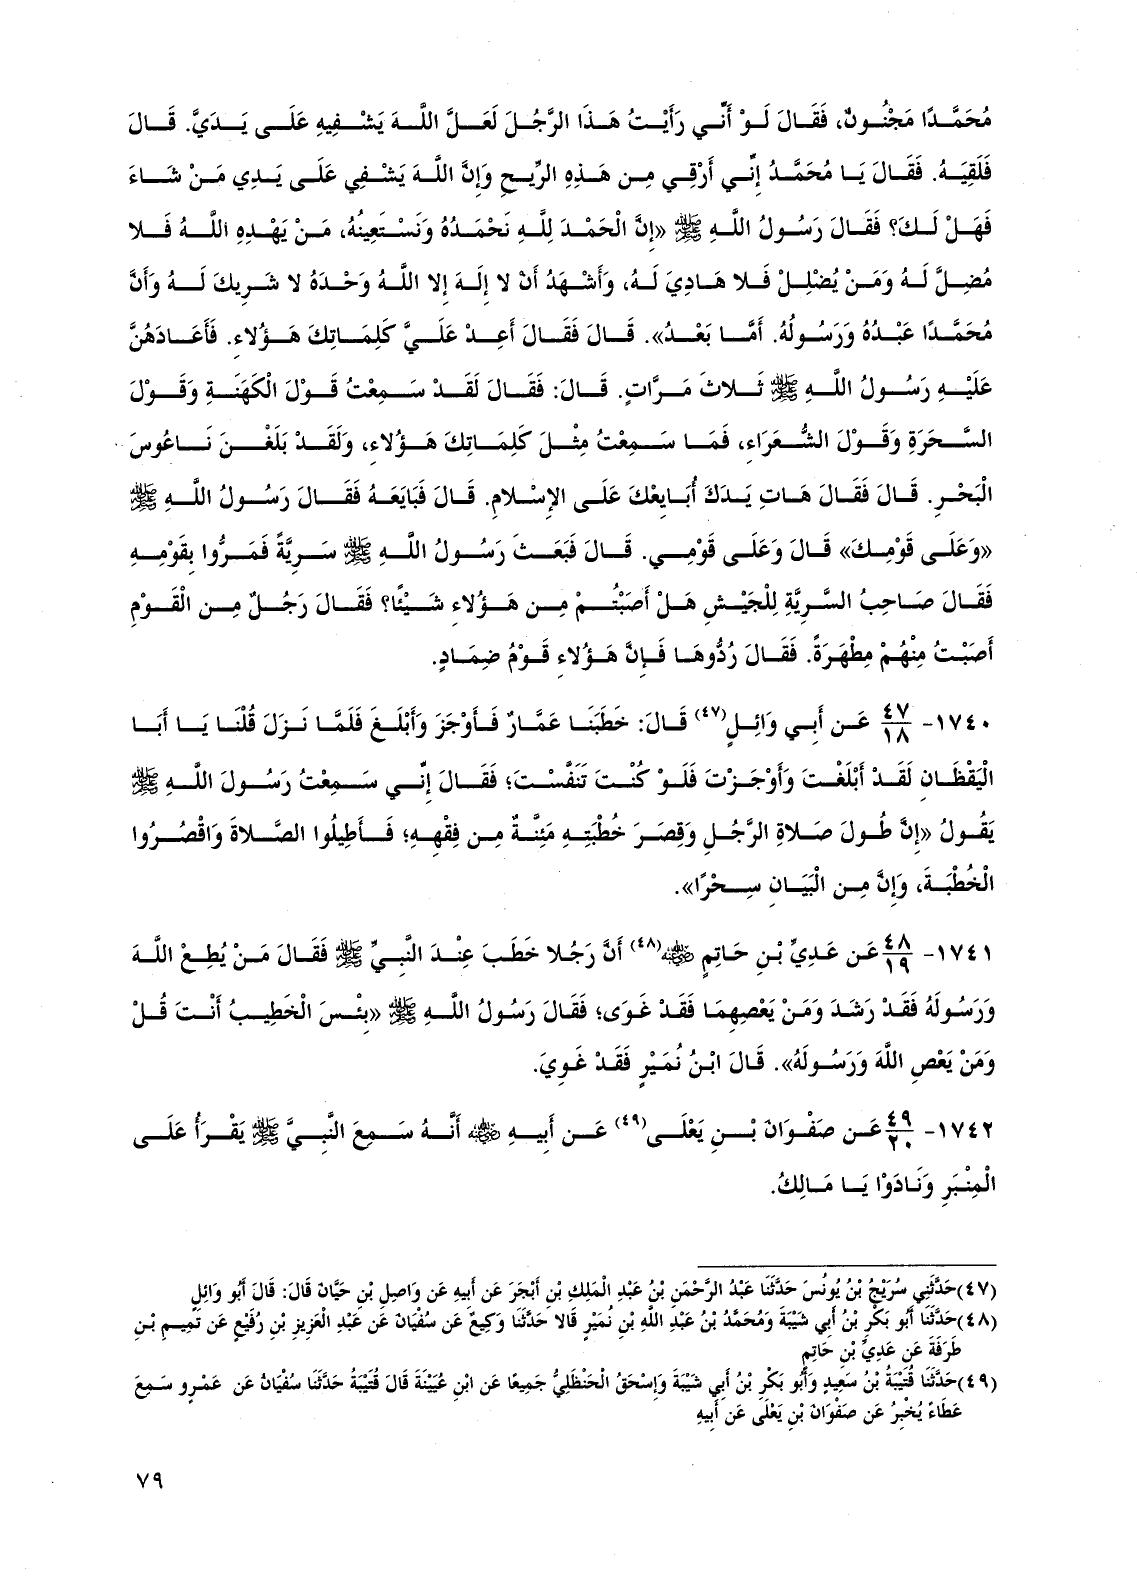 مُحَمَّدًا مَجْنُونٌ، فَقَالَ لَوْ أَنِّي رَأَيْتُ هَذَا الرَّجُلَ لَعَلَّ اللَّهَ يَشْفِيهِ عَلَى يَدَيَّ. قَالَ
فَلَقِيَهُ. فَقَالَ يَا مُحَمَّدُ إِنِّي أَرْقِي مِن هَذِهِ الرِّيحِ وَإِنَّ اللَّهَ يَشْفِي عَلَى يَدِي مَنْ شَاءَ
فَهَلْ لَكَ؟ فَقَالَ رَسُولُ اللَّهِ ﷺ «إِنَّ الْحَمْدَ لِلَّهِ نَحْمَدُهُ وَنَسْتَعِينُهُ، مَنْ يَهْدِهِ اللَّهُ فَلا
مُضِلَّ لَهُ وَمَنْ يُضْلِلْ فَلا هَادِيَ لَهُ، وَأَشْهَدُ أَنْ لا إِلَهَ إِلا اللَّهُ وَحْدَهُ لا شَرِيكَ لَهُ وَأَنَّ
مُحَمَّدًا عَبْدُهُ وَرَسُولُهُ. أَمَّا بَعْدُ». قَالَ فَقَالَ أَعِدْ عَلَيَّ كَلِمَاتِكَ هَؤُلاءِ. فَأَعَادَهُنَّ
عَلَيْهِ رَسُولُ اللَّهِ ﷺ ثَلاثَ مَرَّاتٍ. قَالَ: فَقَالَ لَقَدْ سَمِعْتُ قَوْلَ الْكَهَنَةِ وَقَوْلَ
السَّحَرَةِ وَقَوْلَ الشُّعَرَاءِ، فَمَا سَمِعْتُ مِثْلَ كَلِمَاتِكَ هَؤُلاءِ، وَلَقَدْ بَلَغْنَ نَاعُوسَ
الْبَحْرِ. قَالَ فَقَالَ هَاتِ يَدَكَ أُبَايِعْكَ عَلَى الإِسْلامِ. قَالَ فَبَايَعَهُ فَقَالَ رَسُولُ اللَّهِ ﷺ
«وَعَلَى قَوْمِكَ» قَالَ وَعَلَى قَوْمِي. قَالَ فَبَعَثَ رَسُولُ اللَّهِ ﷺ سَرِيَّةً فَمَرُّوا بِقَوْمِهِ
فَقَالَ صَاحِبُ السَّرِيَّةِ لِلْجَيْشِ هَلْ أَصَبْتُمْ مِن هَؤُلاءِ شَيْئًا؟ فَقَالَ رَجُلٌ مِن الْقَوْمِ
أَصَبْتُ مِنْهُمْ مِطْهَرَةً. فَقَالَ رُدُّوهَا فَإِنَّ هَؤُلاءِ قَوْمُ ضِمَادٍ.
١٧٤٠- ٤٧/١٨ عَن أَبِي وَائِلٍ(٤٧) قَالَ: خَطَبَنَا عَمَّارٌ فَأَوْجَزَ وَأَبْلَغَ فَلَمَّا نَزَلَ قُلْنَا يَا أَبَا
الْيَقْظَانِ لَقَدْ أَبْلَغْتَ وَأَوْجَزْتَ فَلَوْ كُنْتَ تَنَفَّسْتَ؛ فَقَالَ إِنِّي سَمِعْتُ رَسُولَ اللَّهِ ﷺ
يَقُولُ «إِنَّ طُولَ صَلاةِ الرَّجُلِ وَقِصَرَ خُطْبَتِهِ مَئِنَّةٌ مِن فِقْهِهِ؛ فَأَطِيلُوا الصَّلاةَ وَاقْصُرُوا
الْخُطْبَةَ، وَإِنَّ مِن الْبَيَانِ سِحْرًا».
١٧٤١- ٤٨/١٩ عَن عَدِيِّ بْنِ حَاتِمٍ ﵁(٤٨) أَنَّ رَجُلا خَطَبَ عِنْدَ النَّبِيِّ ﷺ فَقَالَ مَنْ يُطِعِ اللَّهَ
وَرَسُولَهُ فَقَدْ رَشَدَ وَمَنْ يَعْصِهِمَا فَقَدْ غَوَى؛ فَقَالَ رَسُولُ اللَّهِ ﷺ «بِئْسَ الْخَطِيبُ أَنْتَ قُلْ
وَمَنْ يَعْصِ اللَّهَ وَرَسُولَهُ». قَالَ ابْنُ نُمَيْرٍ فَقَدْ غَوِيَ.
١٧٤٢- ٤٩/٢٠ عَن صَفْوَانَ بْنِ يَعْلَى(٤٩) عَن أَبِيهِ ﵁ أَنَّهُ سَمِعَ النَّبِيَّ ﷺ يَقْرَأُ عَلَى
الْمِنْبَرِ وَنَادَوْا يَا مَالِكُ.
(٤٧)حَدَّثَنِي سُرَيْجُ بْنُ يُونُسَ حَدَّثَنَا عَبْدُ الرَّحْمَنِ بْنُ عَبْدِ الْمَلِكِ بْنِ أَبْجَرَ عَن أَبِيهِ عَن وَاصِلِ بْنِ حَيَّانَ قَالَ: قَالَ أَبُو وَائِلٍ
(٤٨)حَدَّثَنَا أَبُو بَكْرِ بْنُ أَبِي شَيْبَةَ وَمُحَمَّدُ بْنُ عَبْدِ اللَّهِ بْنِ نُمَيْرٍ قَالا حَدَّثَنَا وَكِيعٌ عَن سُفْيَانَ عَن عَبْدِ الْعَزِيزِ بْنِ رُفَيْعٍ عَن تَمِيمِ بْنِ
طَرَفَةَ عَن عَدِيِّ بْنِ حَاتِمٍ
(٤٩)حَدَّثَنَا قُتَيْبَةُ بْنُ سَعِيدٍ وَأَبُو بَكْرِ بْنُ أَبِي شَيْبَةَ وَإِسْحَقُ الْحَنْظَلِيُّ جَمِيعًا عَن ابْنِ عُيَيْنَةَ قَالَ قُتَيْبَةُ حَدَّثَنَا سُفْيَانُ عَن عَمْرٍو سَمِعَ
عَطَاءً يُخْبِرُ عَن صَفْوَانَ بْنِ يَعْلَى عَن أَبِيهِ
٧٩